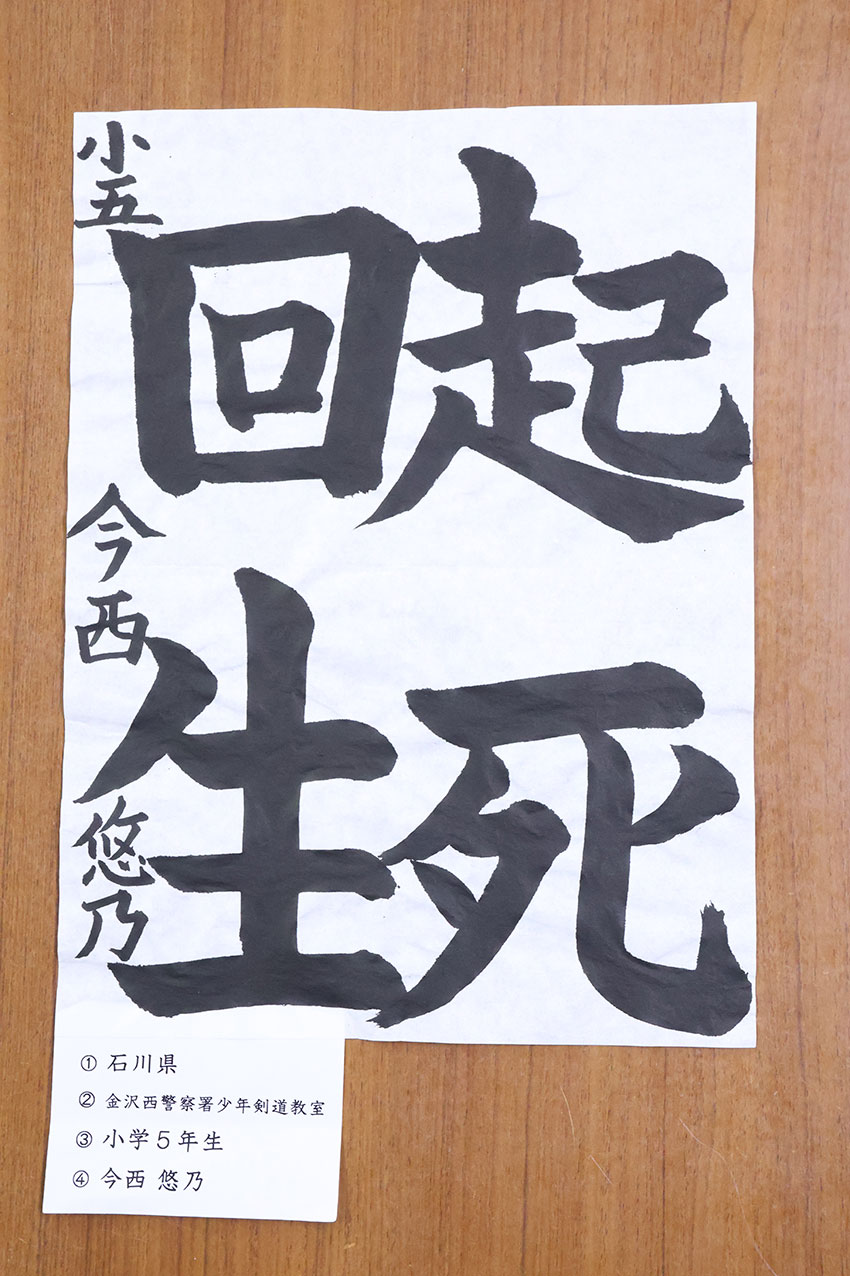 起死
回生
小五 今西 悠乃
① 石川県
② 金沢西警察署少年剣道教室
③ 小学5年生
④ 今西 悠乃